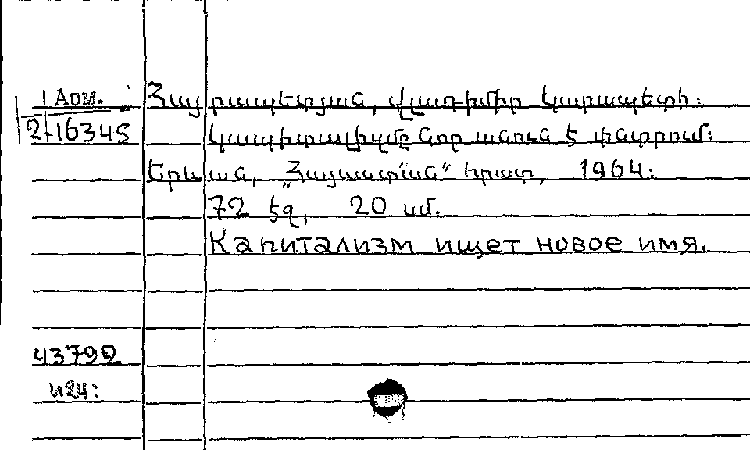 Арм. Հայրապետյան, Վլադիմիր Կարապետի:
2-16345 Կապիտալիզմը նոր անուն է փնտրում:
Երևան, „Հայաստան“ հրատ, 1964:
72 էջ, 20 սմ.
Капитализм ищет новое имя.
43792